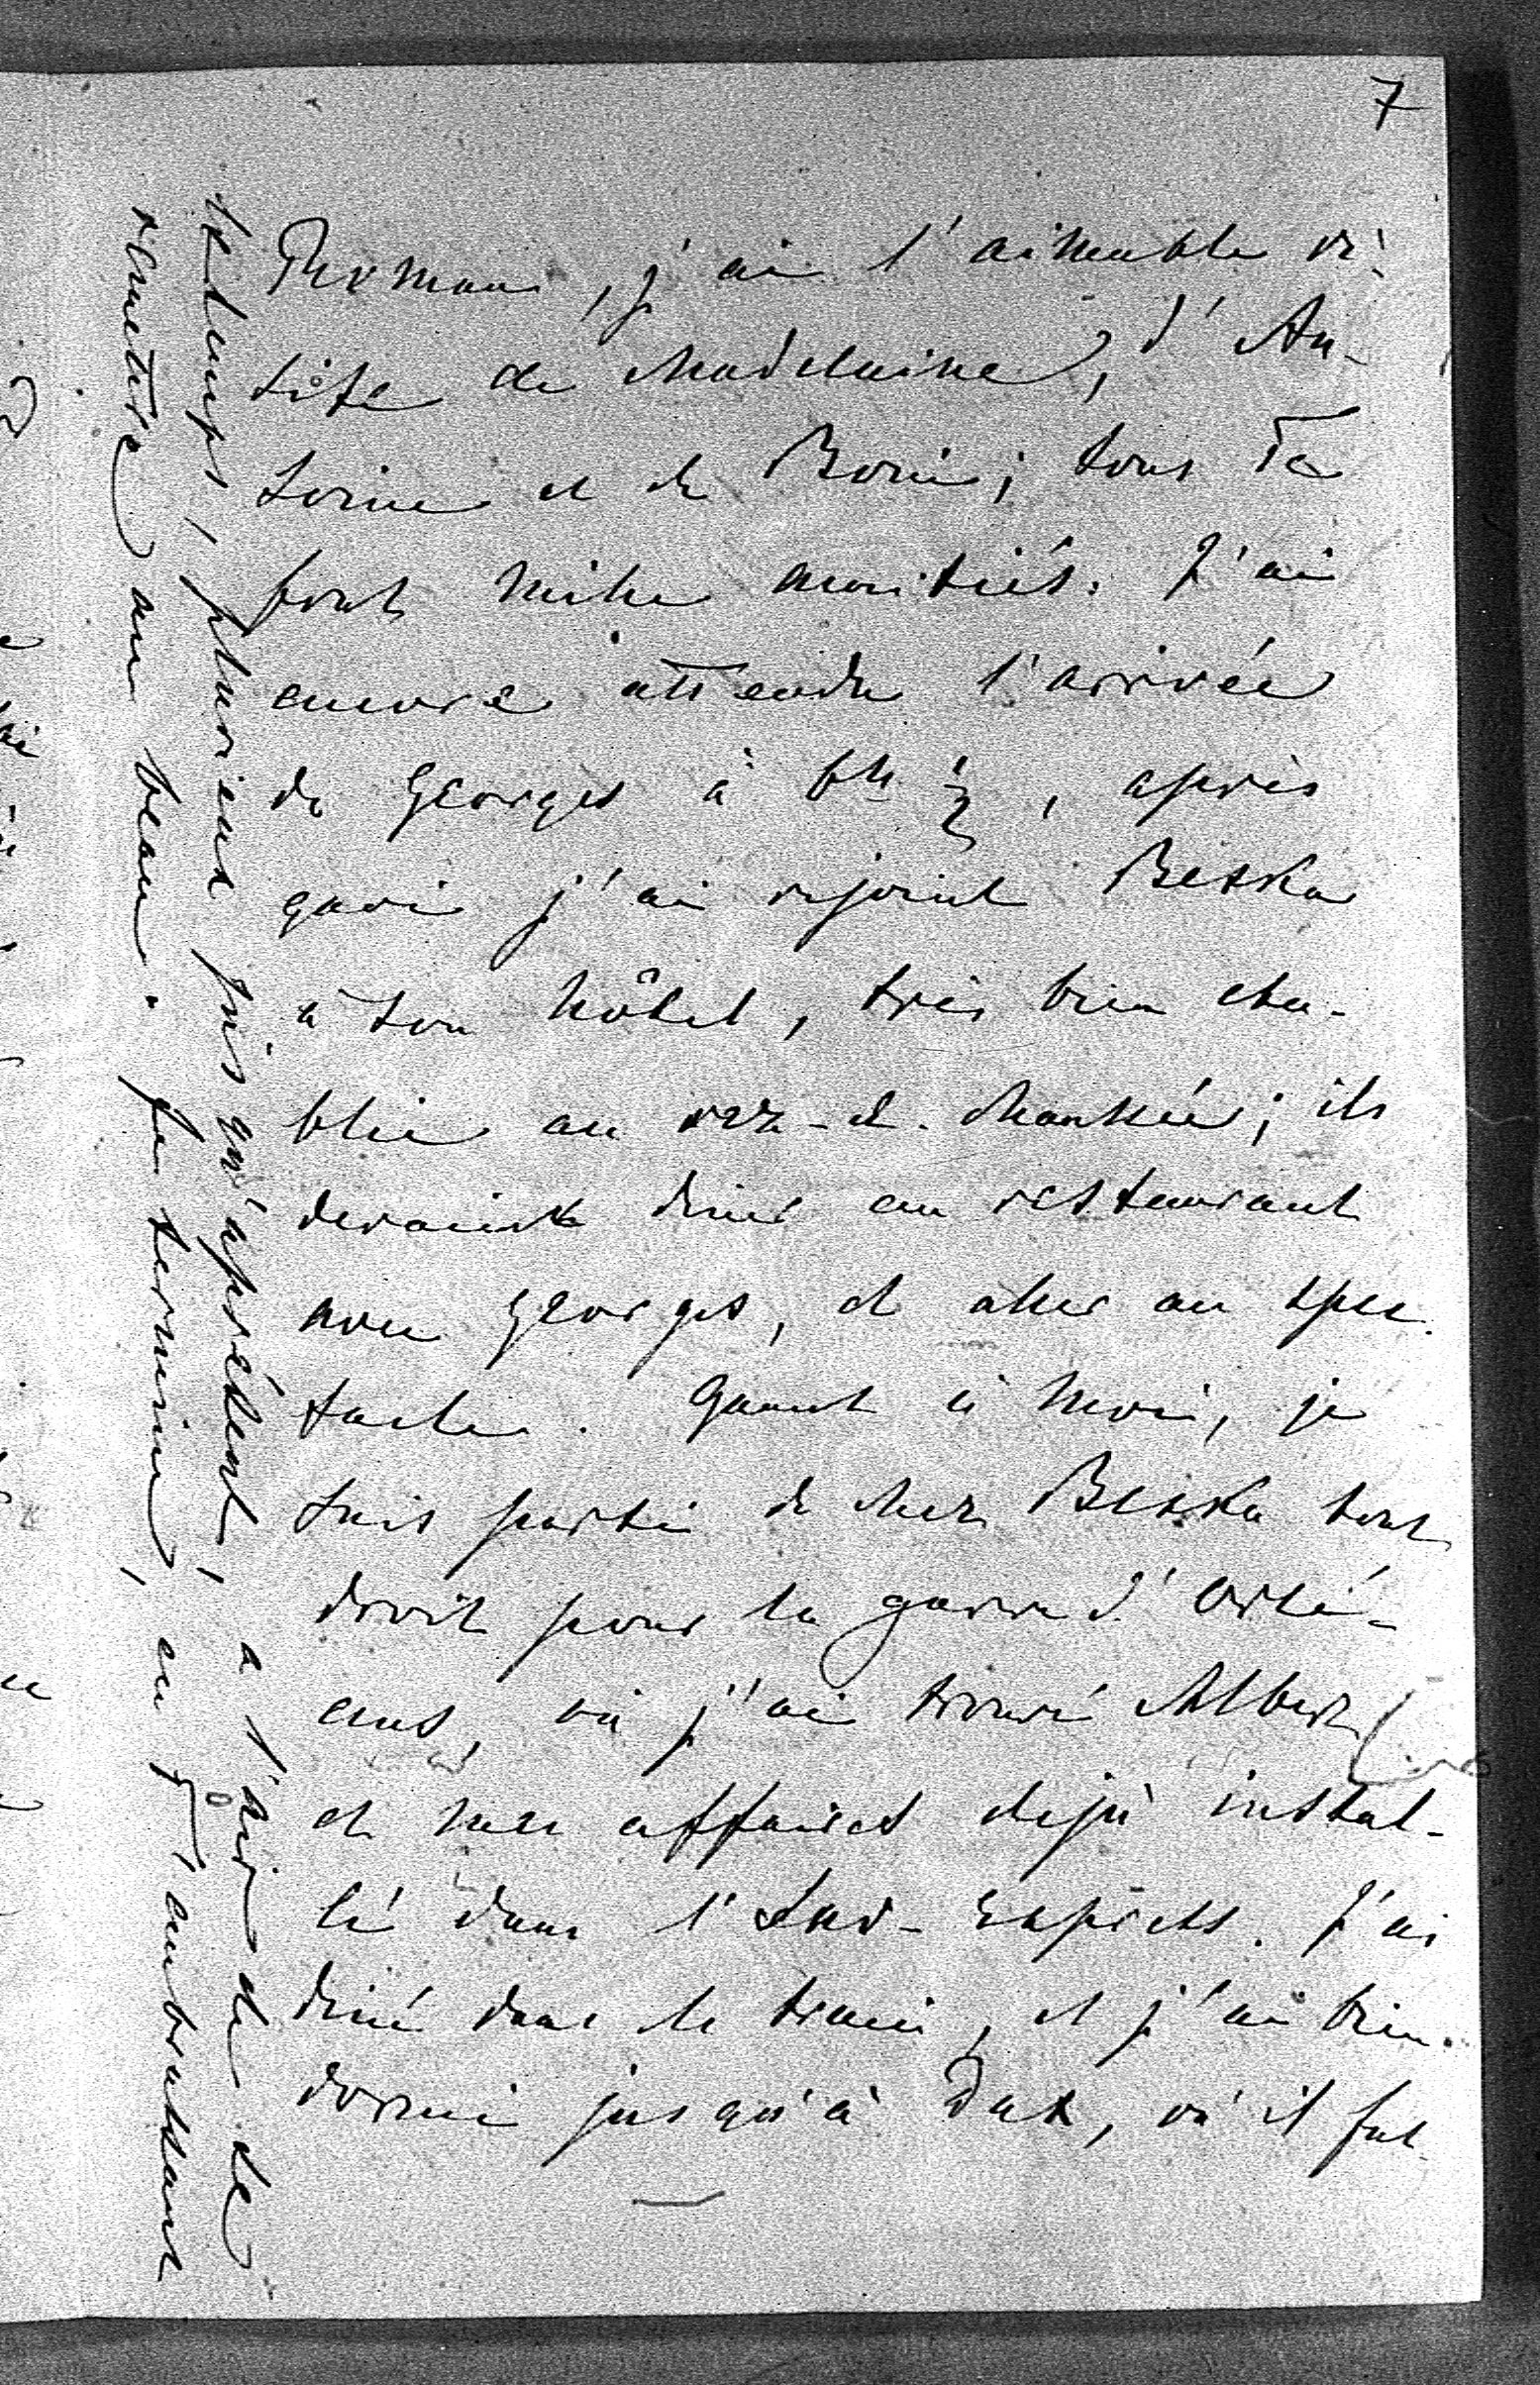 7
j'ai l'aimable vi-
site de Madelaine, d'An-
toine et de Boni; tous te
font mille amitiés. J'ai
encore attendu l'arrivée
de Georges à 6h ½, après
quoi j'ai rejoint Beska
à son hôtel, très bien éta-
blie au rez-d. chaussée; ils
devaient diner au restaurant
avec Georges, et aller au spec-
tacle. Quant à moi, je
suis parti de chez Beska tout
droit pour la garre d'Orlé-
ans, où j'ai trouvé Albert
et mes affaires dejà instal-
lé dans l'Sud-Express. J'ai
diné dans le train, et j'ai bien
dormi jusqu'à Dax, où il fut
le temps, pluvieux jusqu'aprésent, a l'air de se
remettre au beau. Je termine, en t'embrassant